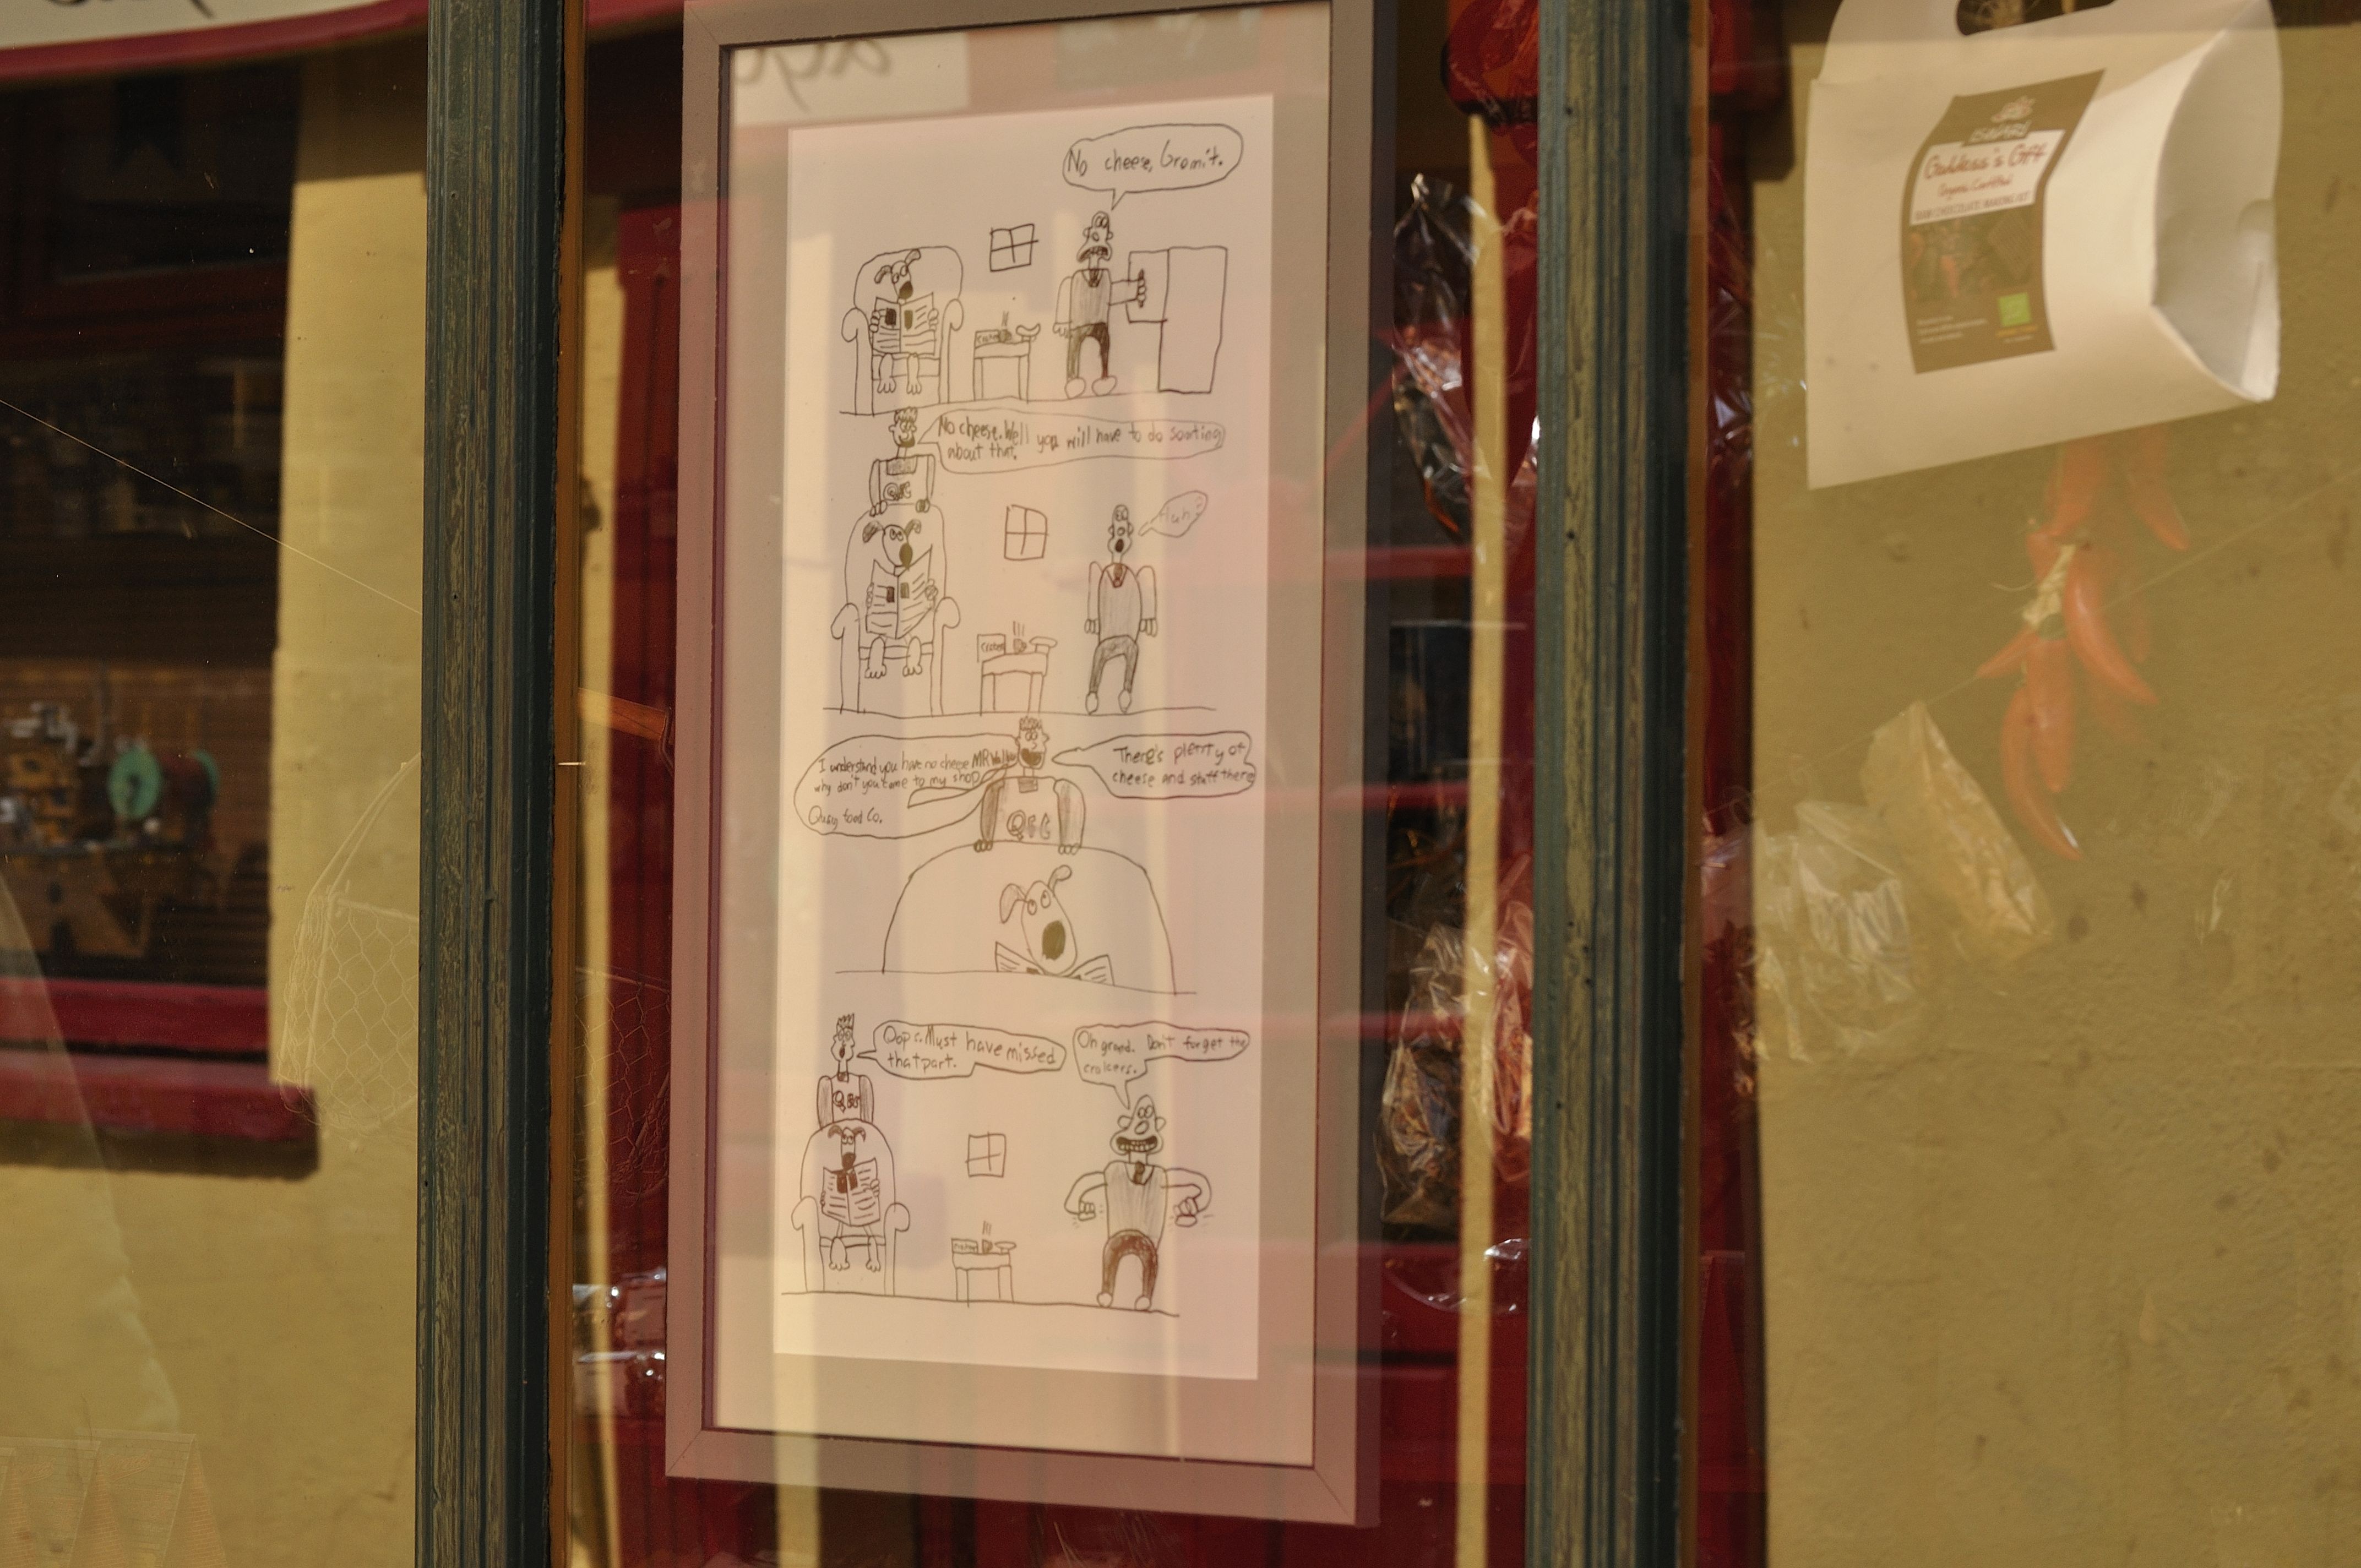 No cheese, Gromit.
No cheese. Well you will have to do somting
about that.
Huh?
I understand you have no cheese MR
why don't you come to my shop
food Co.
There's plenty of
cheese and stuff there
QFC
Oops. Must have missed
that part.
Oh grand. Don't forget the
crakers.
Goddess's Gift
Organic Certified
RAW CHOCOLATE MAKING KIT